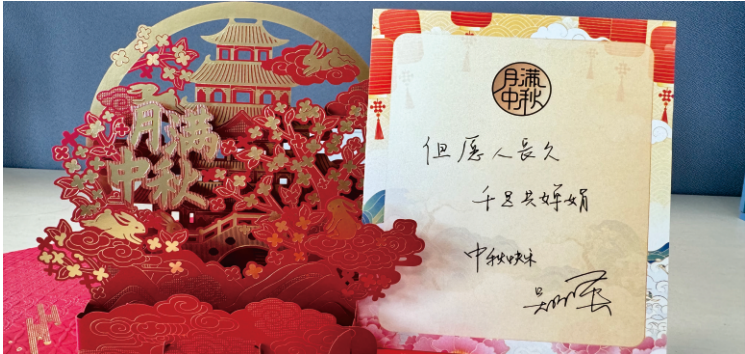 月满
中秋
月满
中秋
但愿人长久
千里共婵娟
中秋快乐